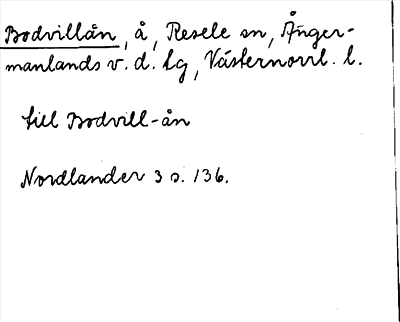 Bodvillån, å, Resele sn, Ånger-
manlands v. d. lg, Västernorrl. l.
till Bodvill-ån
Nordlander 3 s. 136.